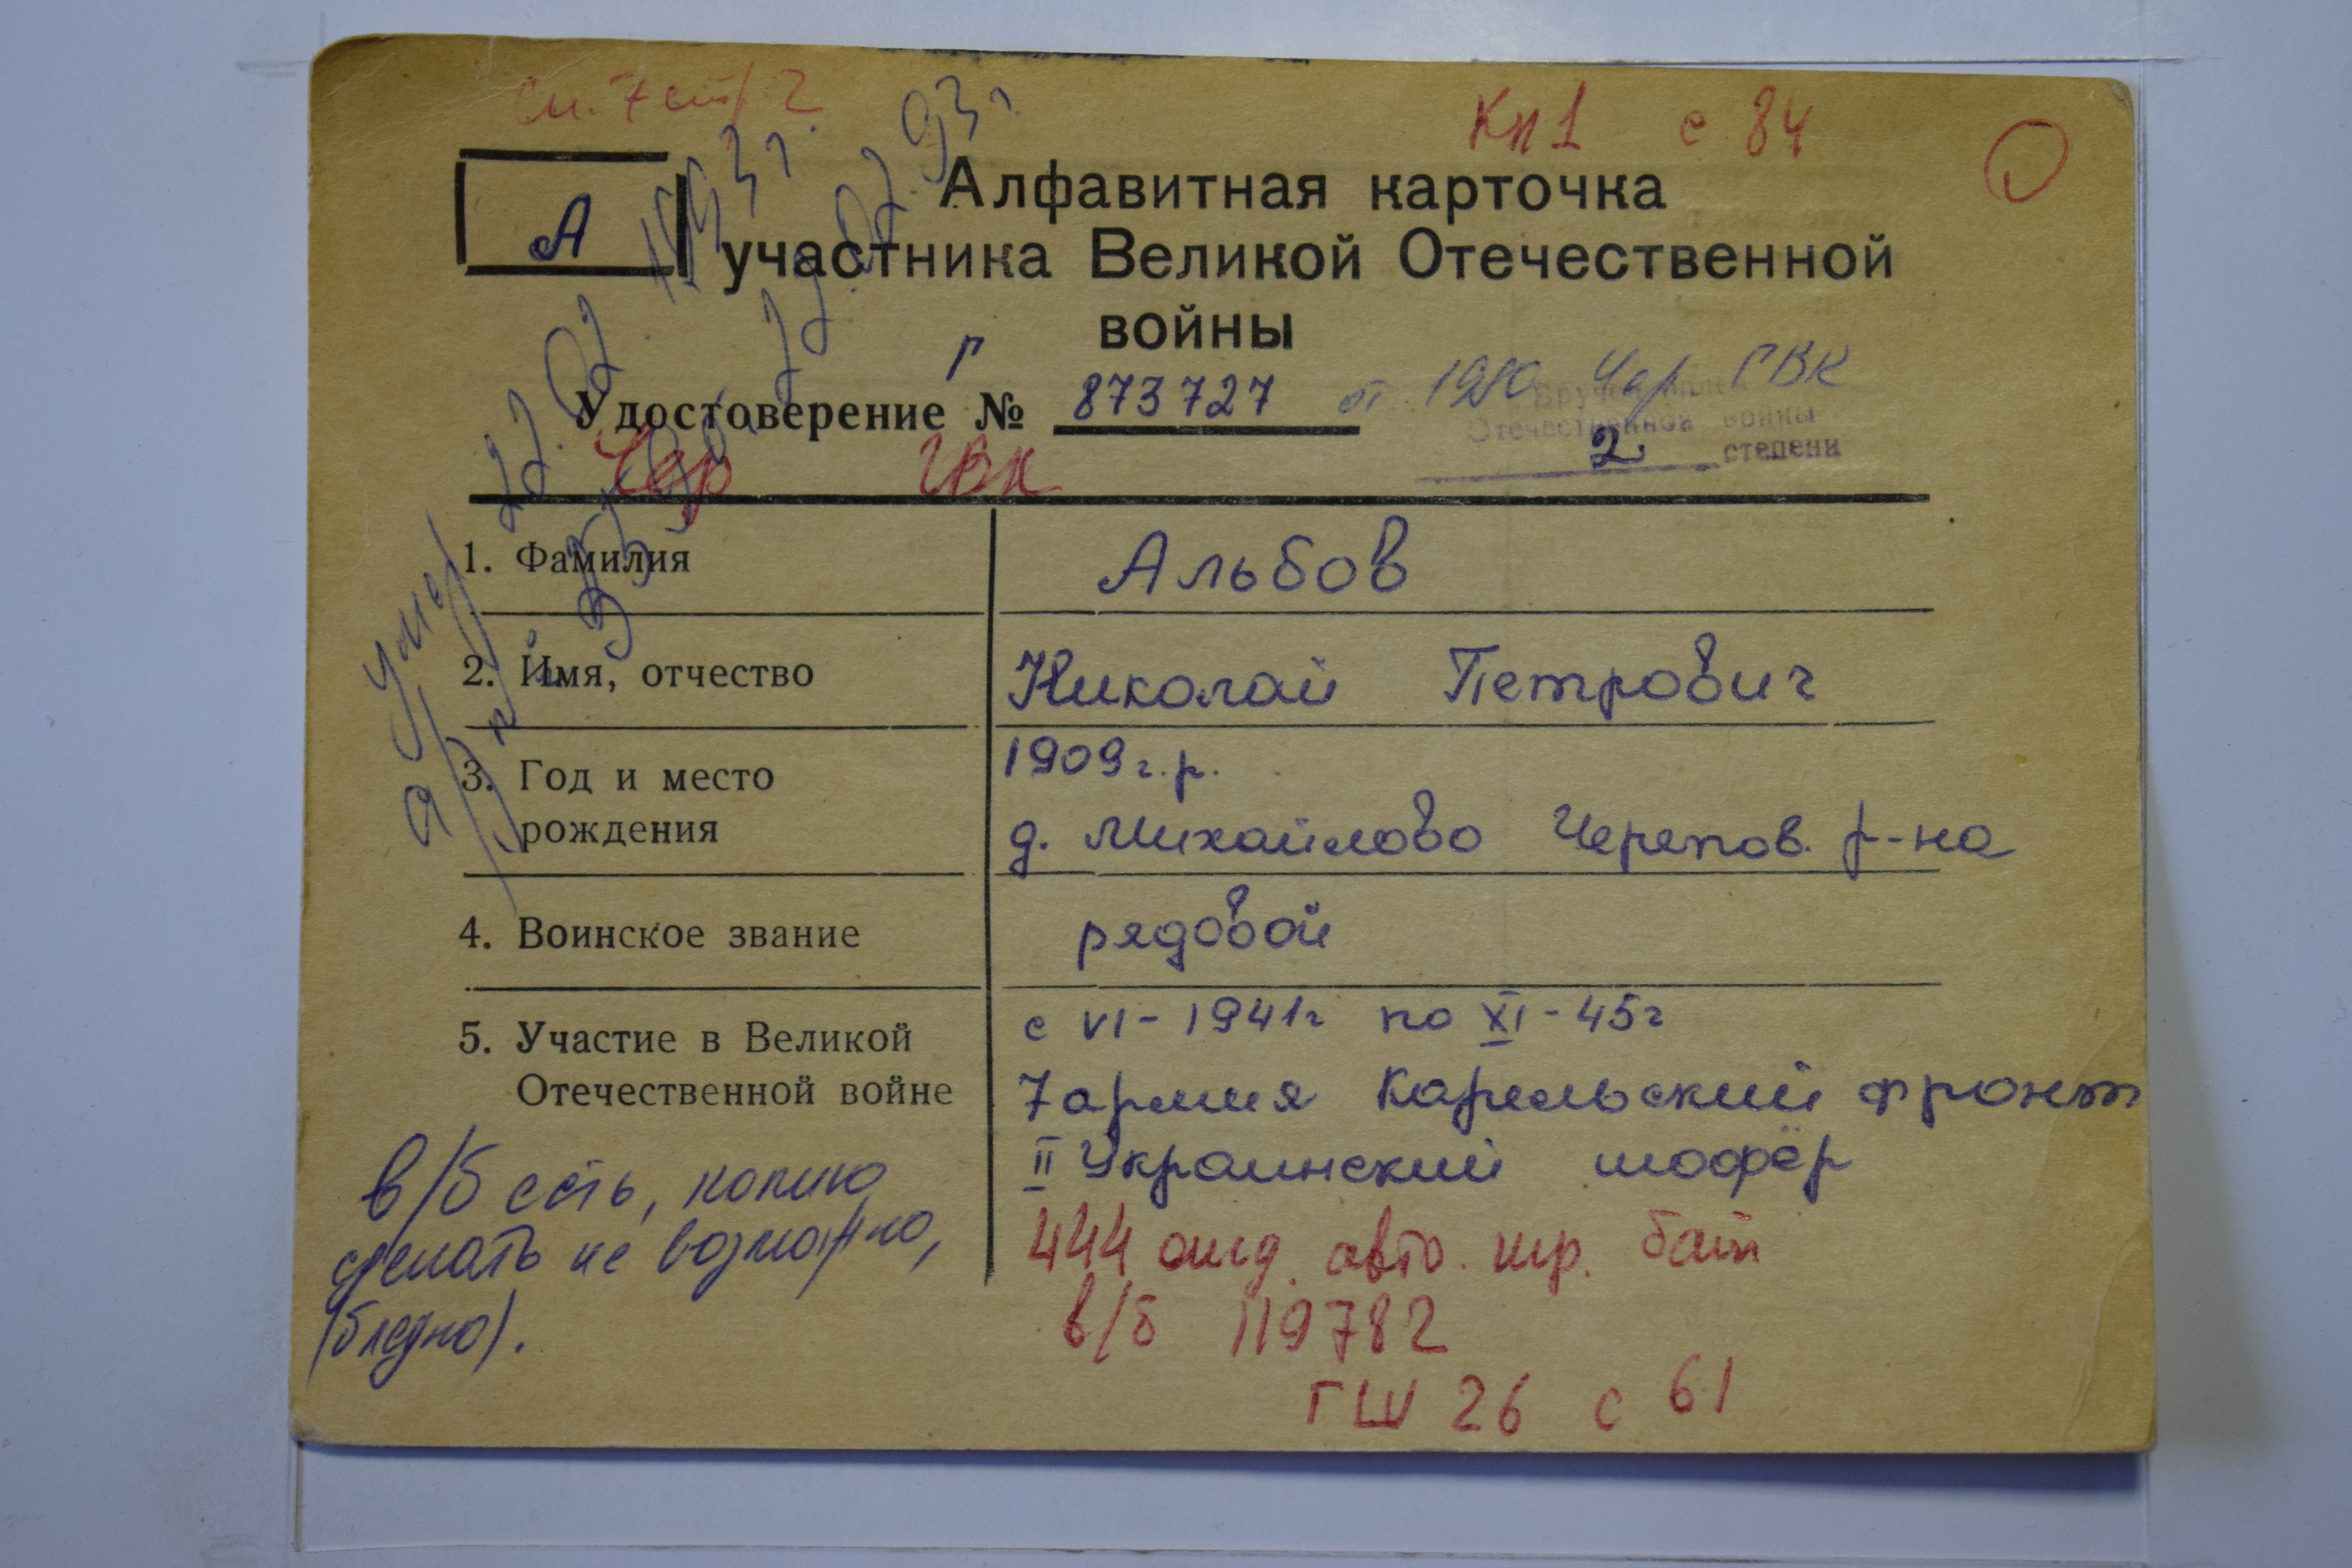 Кп 1 с 84
А
Алфавитная карточка
участника Великой Отечественной
войны
Р
Удостоверение № 873727 от 1980 Чер ГВК
Отечественной войны
2 степени
Чер ГВК
1. Фамилия Альбов
2. Имя, отчество Николай Петрович
3. Год и место 1909 г.р.
рождения д. Михайлово Черепов. р-на
4. Воинское звание рядовой
5. Участие в Великой с VI - 1941г по XI - 45г
Отечественной войне 7 армия Карельский фронт
II Украинский шофёр
444 отд. авто. тр. бат
в/б 119782
ГШ 26 с 61
в/б есть, копию
сделать не возможно,
(бледно).
Умер 22.02.1993г.